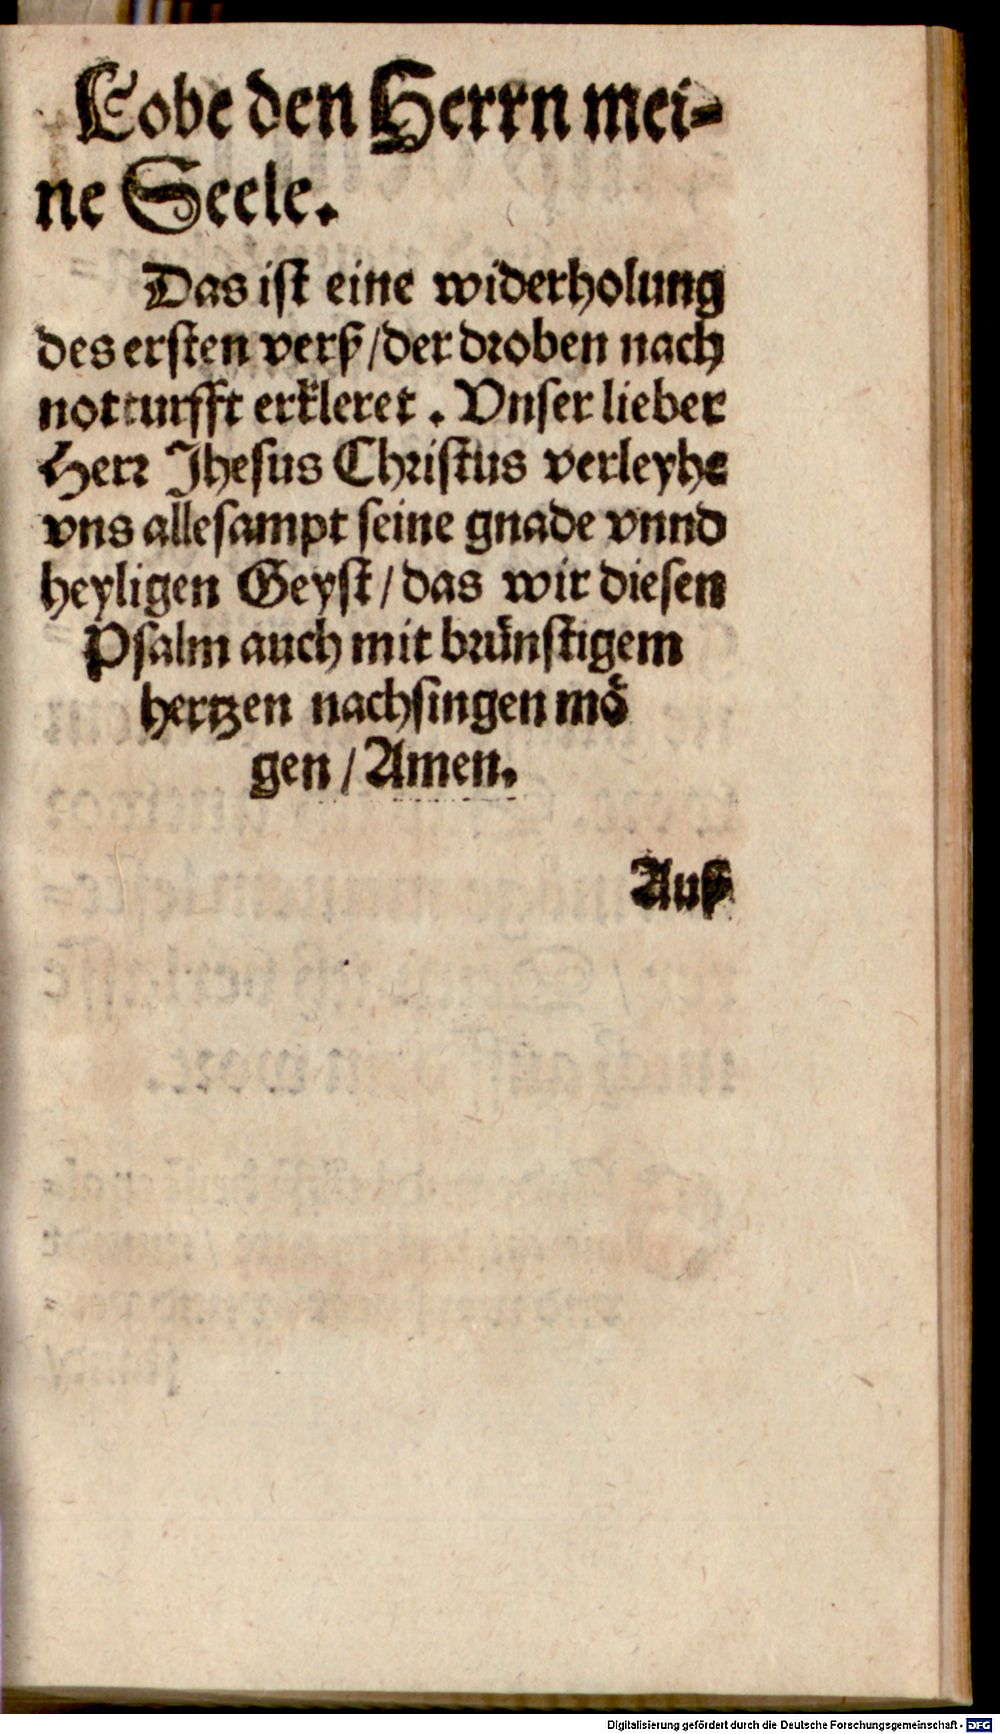 Lobe den Herrn mei-
ne Seele.
Das ist eine widerholung
des ersten verß/der droben nach
notturfft erkleret. Vnser lieber
Herr Jhesus Christus verleyhe
vns allesampt seine gnade vnnd
heyligen Geyst/das wir diesen
Psalm auch mit brünstigem
hertzen nachsingen mö
gen/Amen.
Auß
Digitalisierung gefördert durch die Deutsche Forschungsgemeinschaft - DFG